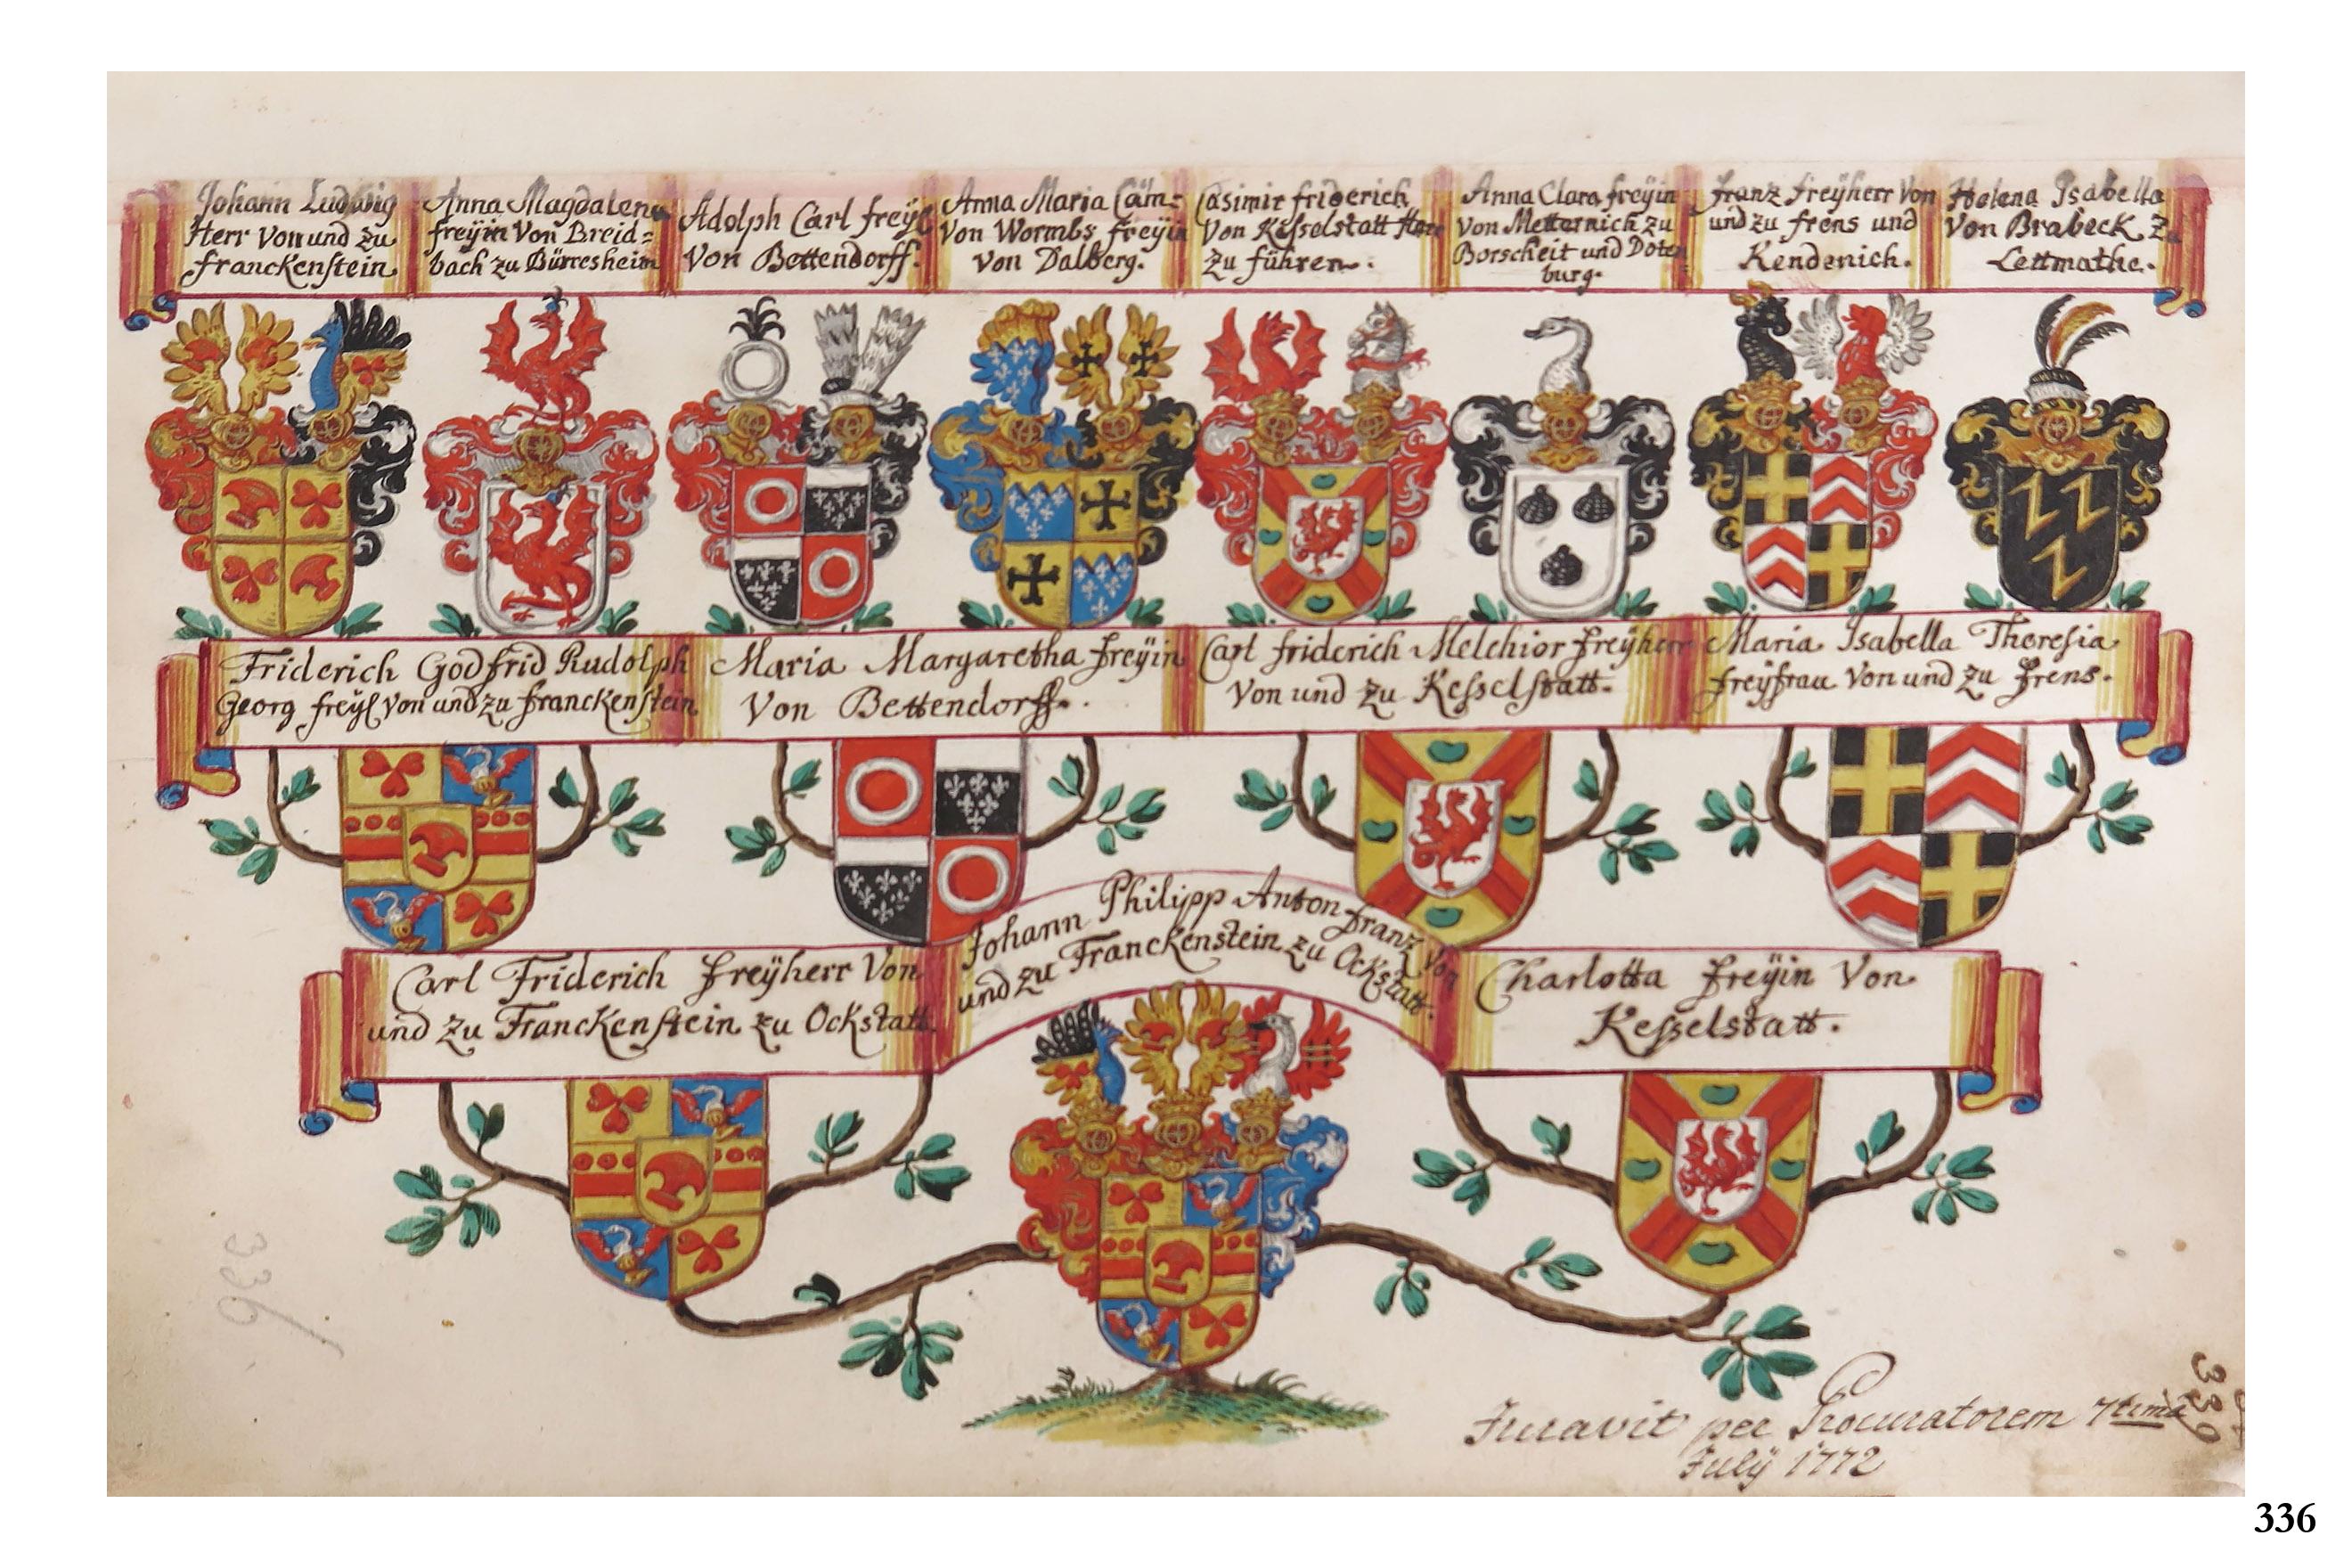 Johann Ludwig
Herr von und zu
franckenstein
Anna Magdalena
freÿin von Breid=
bach zu Bürresheim
Adolph Carl freÿl
von Bettendorff.
Anna Maria Cäm=
von Wormbs freÿin
von Dalberg.
Casimir friderich
von Kesselstatt Herr
zu führen.
Anna Clara freÿin
von Metternich zu
Borscheit und Doten=
burg.
franz freÿherr von
und zu frens und
Kendenich.
Helena Isabella
von Brabeck zu
Lettmathe.
Friderich Godfrid Rudolph
Georg freÿl von und zu franckenstein
Maria Margaretha freÿin
von Bettendorff.
Carl friderich Melchior freÿherr
von und zu Kesselstatt.
Maria Isabella Theresia
freÿfrau von und zu frens.
Carl Friderich freÿherr von
und zu Franckenstein zu Ockstatt
Johann Philipp Anton franz von
und zu Franckenstein zu Ockstatt.
Charlotta freÿin von
Kesselstatt.
336
Iuravit per Procuratorem 7tima
Julÿ 1772
339
336